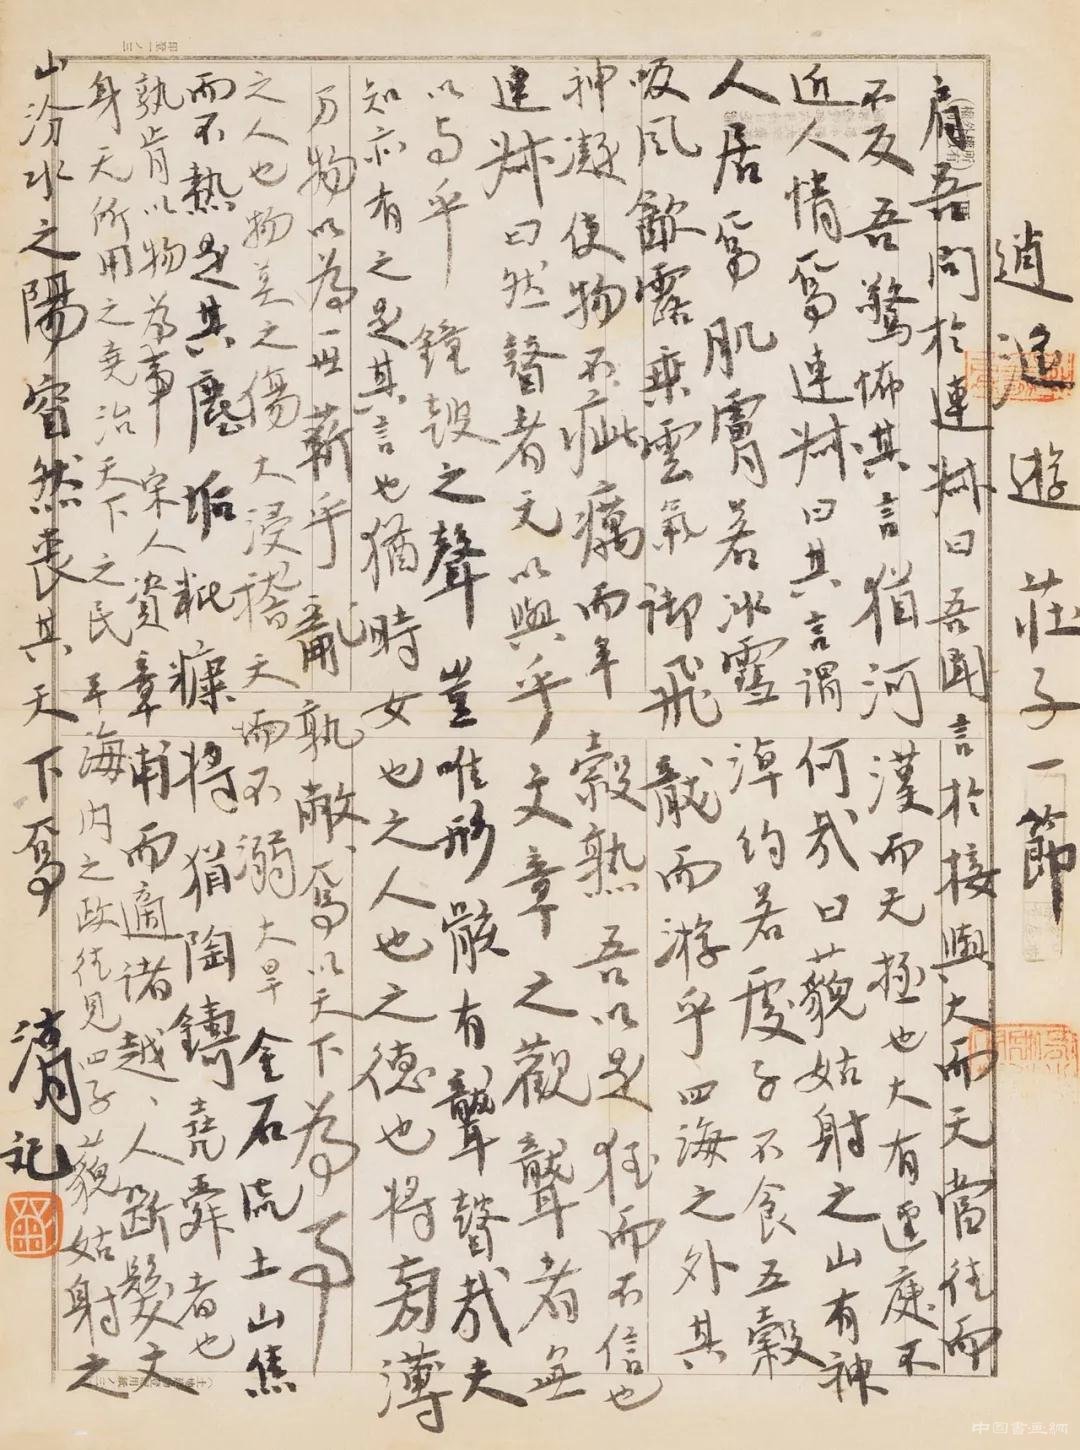 逍遙遊 莊子一節
肩吾問於連叔曰吾聞言於接輿大而无當往而
不反吾驚怖其言猶河漢而无極也大有逕庭不
近人情焉連叔曰其言謂何哉曰藐姑射之山有神
人居焉肌膚若冰雪淖約若處子不食五穀
吸風飲露乘雲氣御飛龍而游乎四海之外其
神凝使物不疵癘而年穀熟吾以是狂而不信也
連叔曰然瞽者无以與乎文章之觀聾者無
以與乎鐘鼓之聲豈唯形骸有聾瞽哉夫
知亦有之是其言也猶時女也之人也之德也將旁薄
万物以為一世蘄乎亂孰敝敝焉以天下為事
之人也物莫之傷大浸稽天而不溺大旱金石流土山焦
而不熱是其塵垢粃糠將猶陶鑄堯舜者也
孰肯以物為事 宋人資章甫而適諸越越人斷髮文
身无所用之堯治天下之民平海內之政往見四子藐姑射之
山汾水之陽窅然喪其天下焉
清記
中国書画網